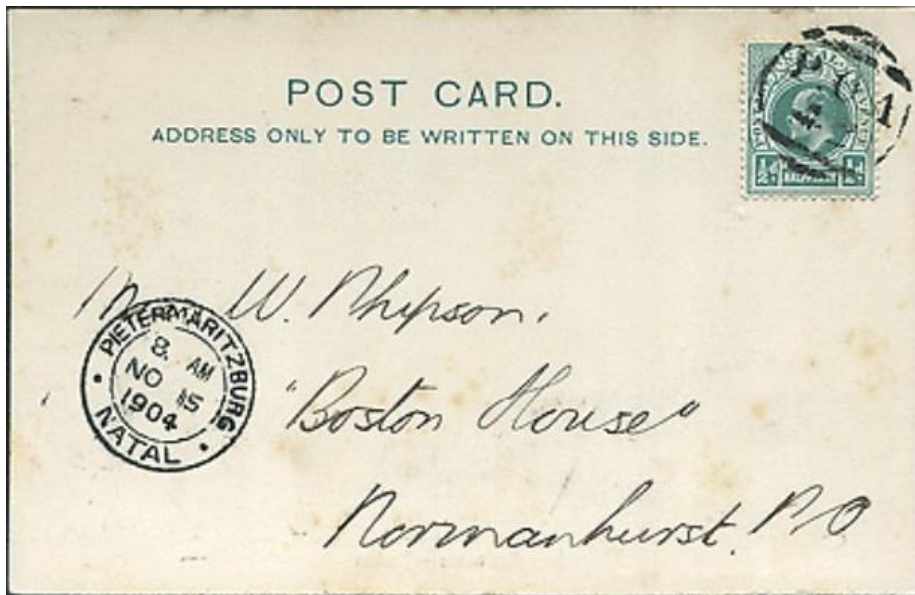 POST CARD.
ADDRESS ONLY TO BE WRITTEN ON THIS SIDE.
½d ½d
W. Phipson,
"Boston House"
Normanhurst. P.O
PIETERMARITZBURG
8 AM
NO 15
1904
NATAL